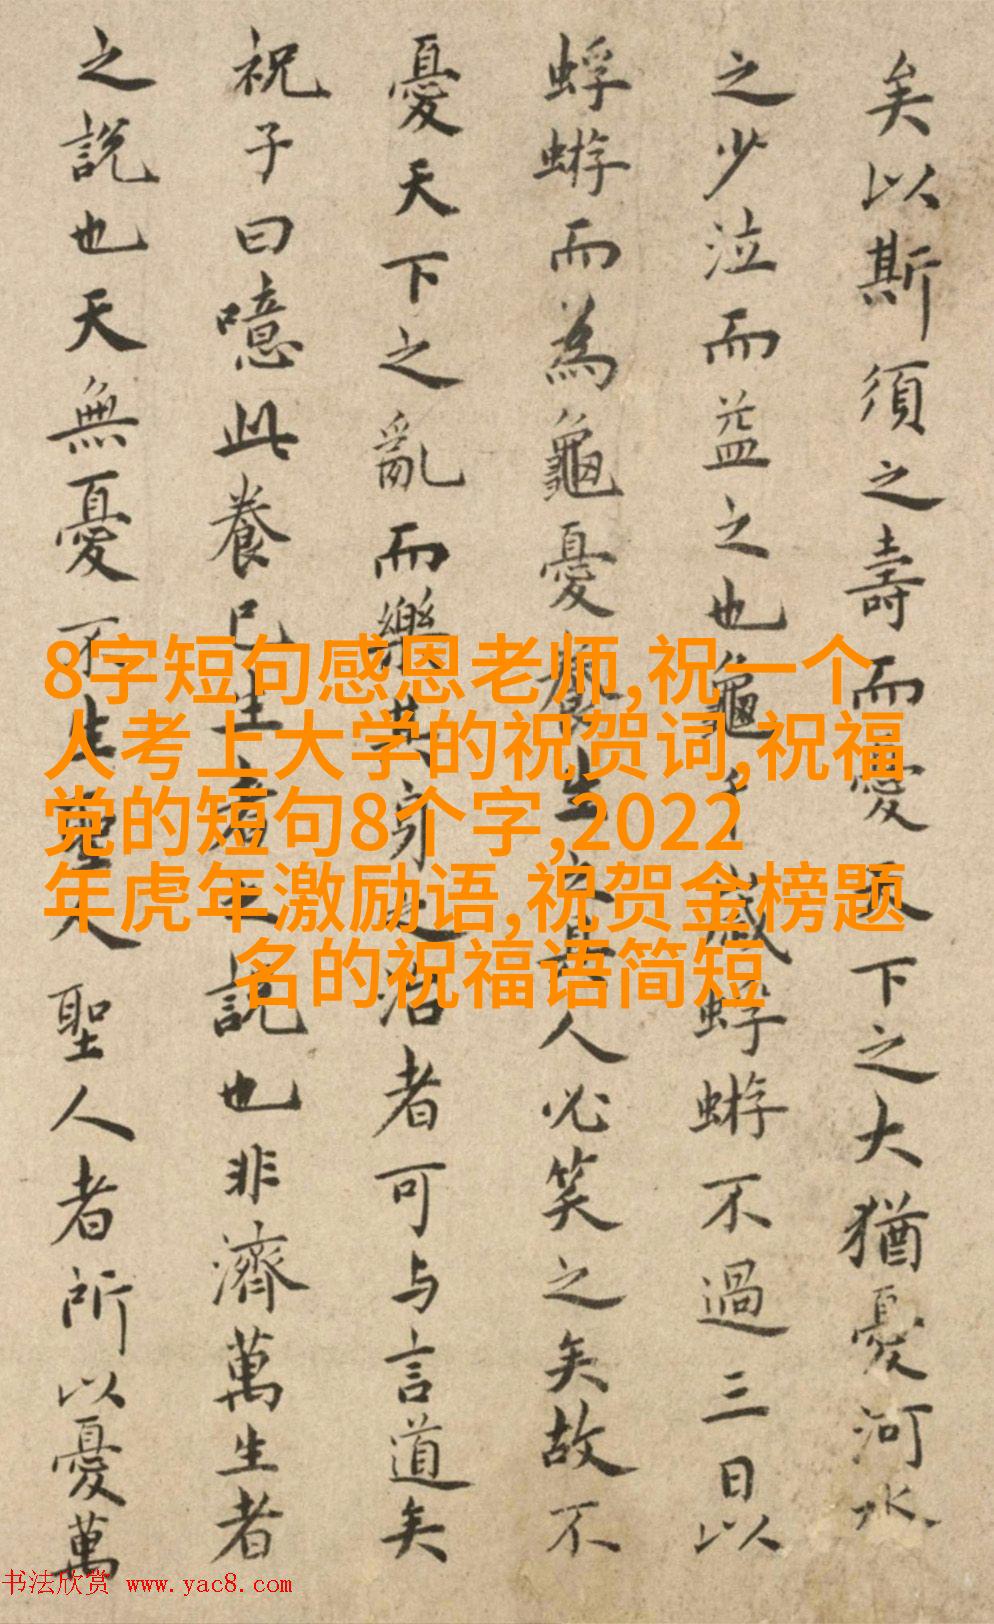 矣以斯須之壽而憂天下之大猶憂河水
之少泣而益之也龜千歲蜉蝣不過三日以
蜉蝣而為龜憂養生之具人必笑之矣故不
憂天下之亂而樂其身之治者可与言道矣
祝子曰噫此養己生者之說也非濟萬生者
之說也天無憂不生聖人聖人者所以憂萬
8字短句感恩老师,祝一个
人考上大学的祝贺词,祝福
党的短句8个字,2022
年虎年激励语,祝贺金榜题
名的祝福语简短
书法欣赏 www.yac8.com